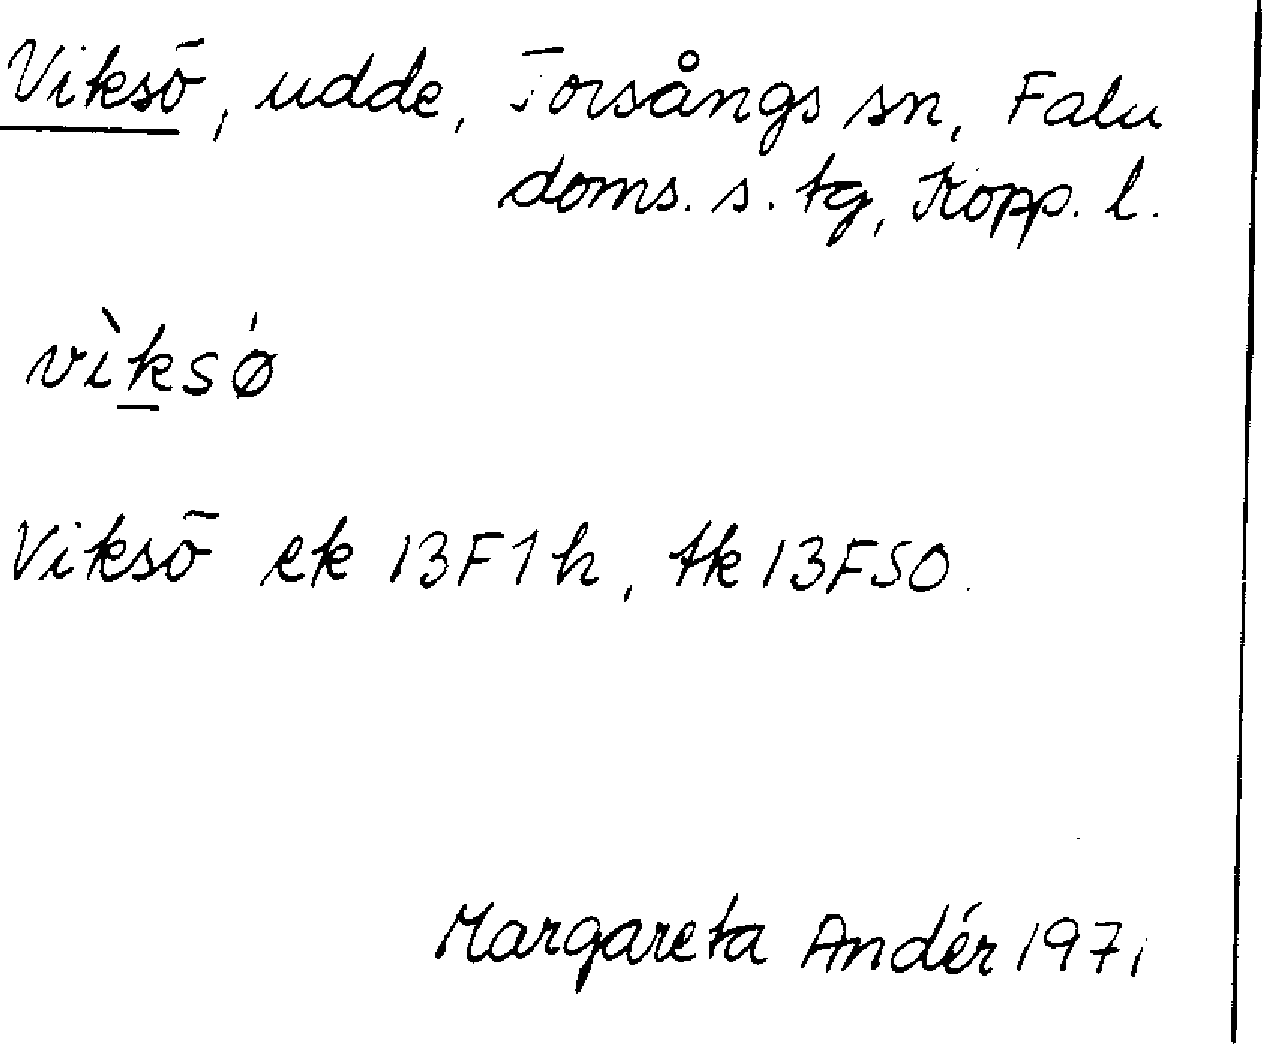 Viksö, udde, Torsångs sn, Falu
doms. s. tg, Kopp. l.
vìksǿ
Viksö ek 13F1h, tk 13F50.
Margareta Andér 1971